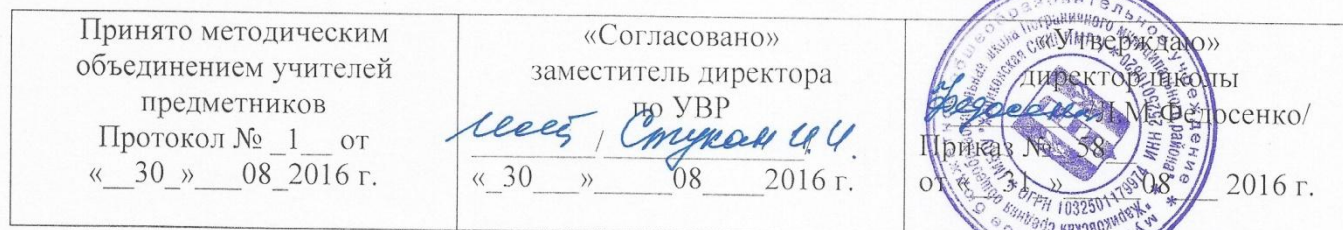 Принято методическим
объединением учителей
предметников
Протокол № _1___ от
«__30_»___08_2016 г.
«Согласовано»
заместитель директора
по УВР
_________/ Стукан И.И.
«_30___»______08____2016 г.
«Утверждаю»
директор школы
Л.М.Федосенко/
Приказ №_58
от «_31_»____08___2016 г.
ОГРН 1032501179974